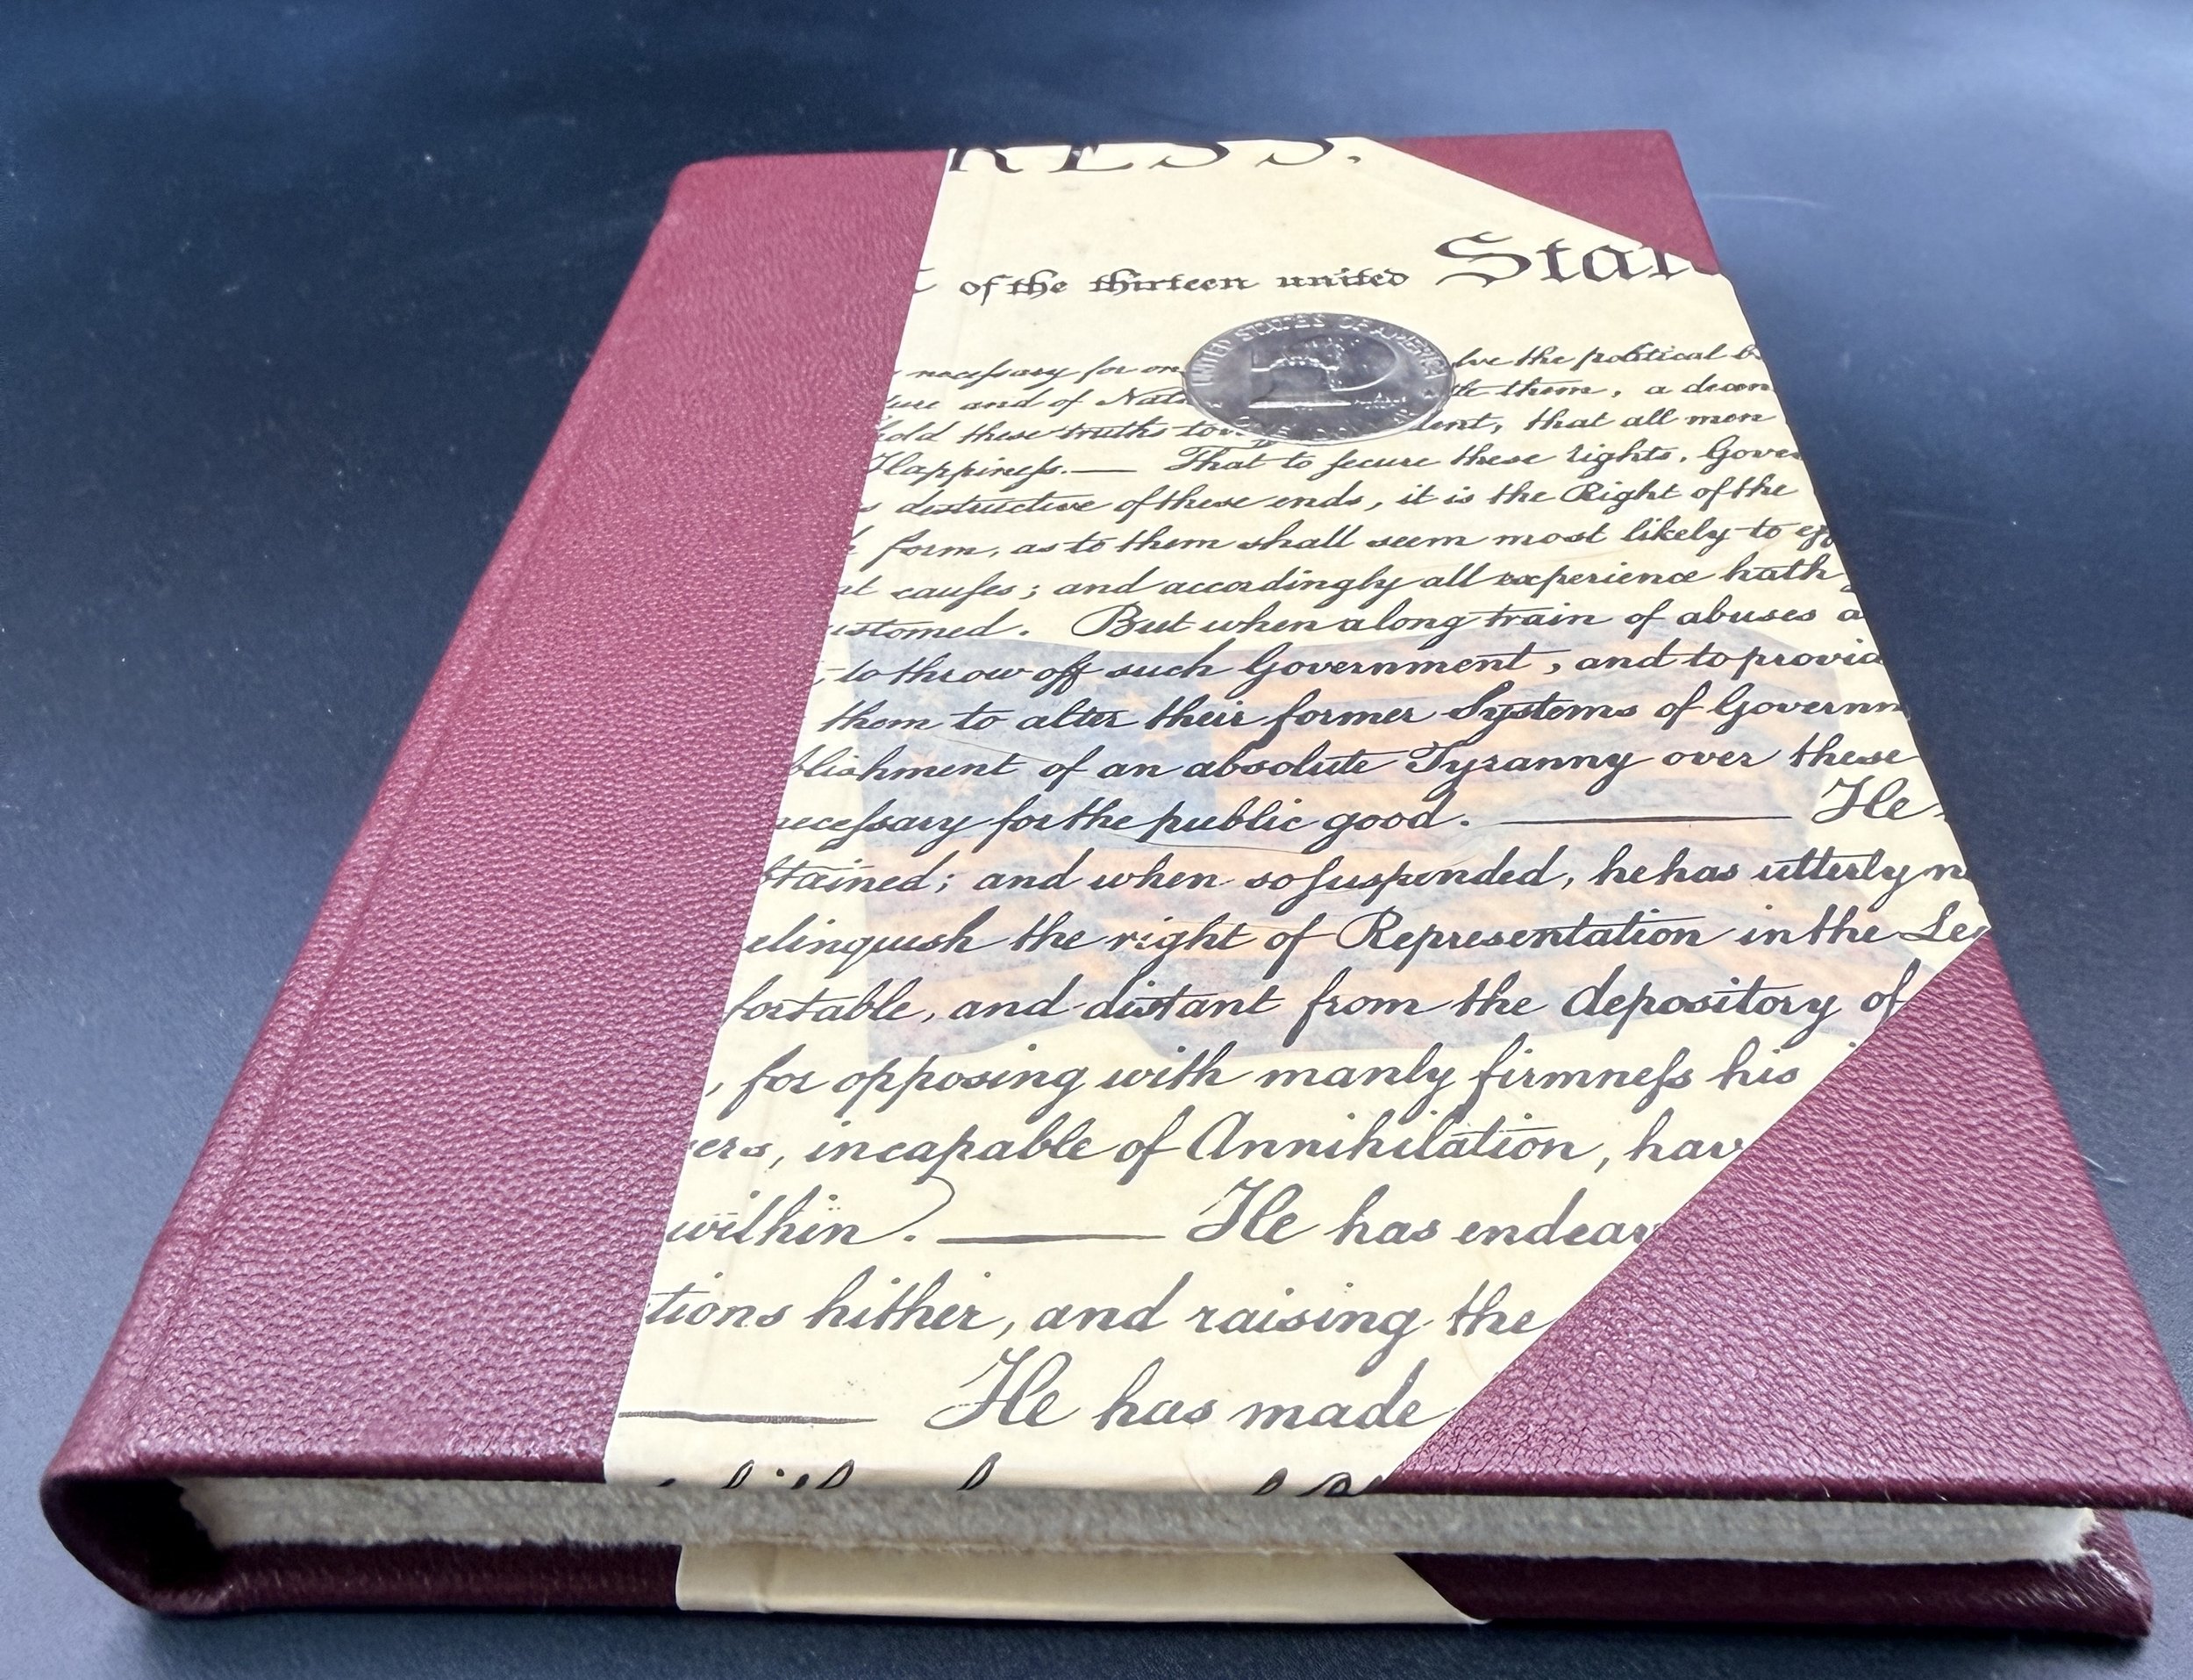 RESS.
of the thirteen united Stat
necessary for on lve the political b
ture and of Natu tle them, a decen
hold these truths to be dent, that all men
Happiness.— That to secure these rights, Gover
s destructive of these ends, it is the Right of the
h form, as to them shall seem most likely to eff
nt causes; and accordingly all experience hath
ustomed. But when a long train of abuses a
, to throw off such Government, and to provid
them to alter their former Systems of Governm
blishment of an absolute Tyranny over these
necessary for the public good. — He
btained; and when so suspended, he has utterly ne
elinquish the right of Representation in the Leg
fortable, and distant from the depository of
, for opposing with manly firmness his
ers, incapable of Annihilation, hav
within. — He has endeav
tions hither, and raising the
— He has made
UNITED STATES OF AMERICA
ONE DOLLAR